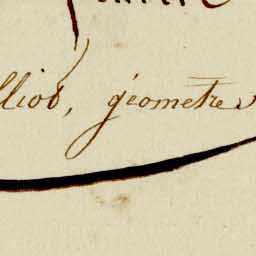 llios, géometre